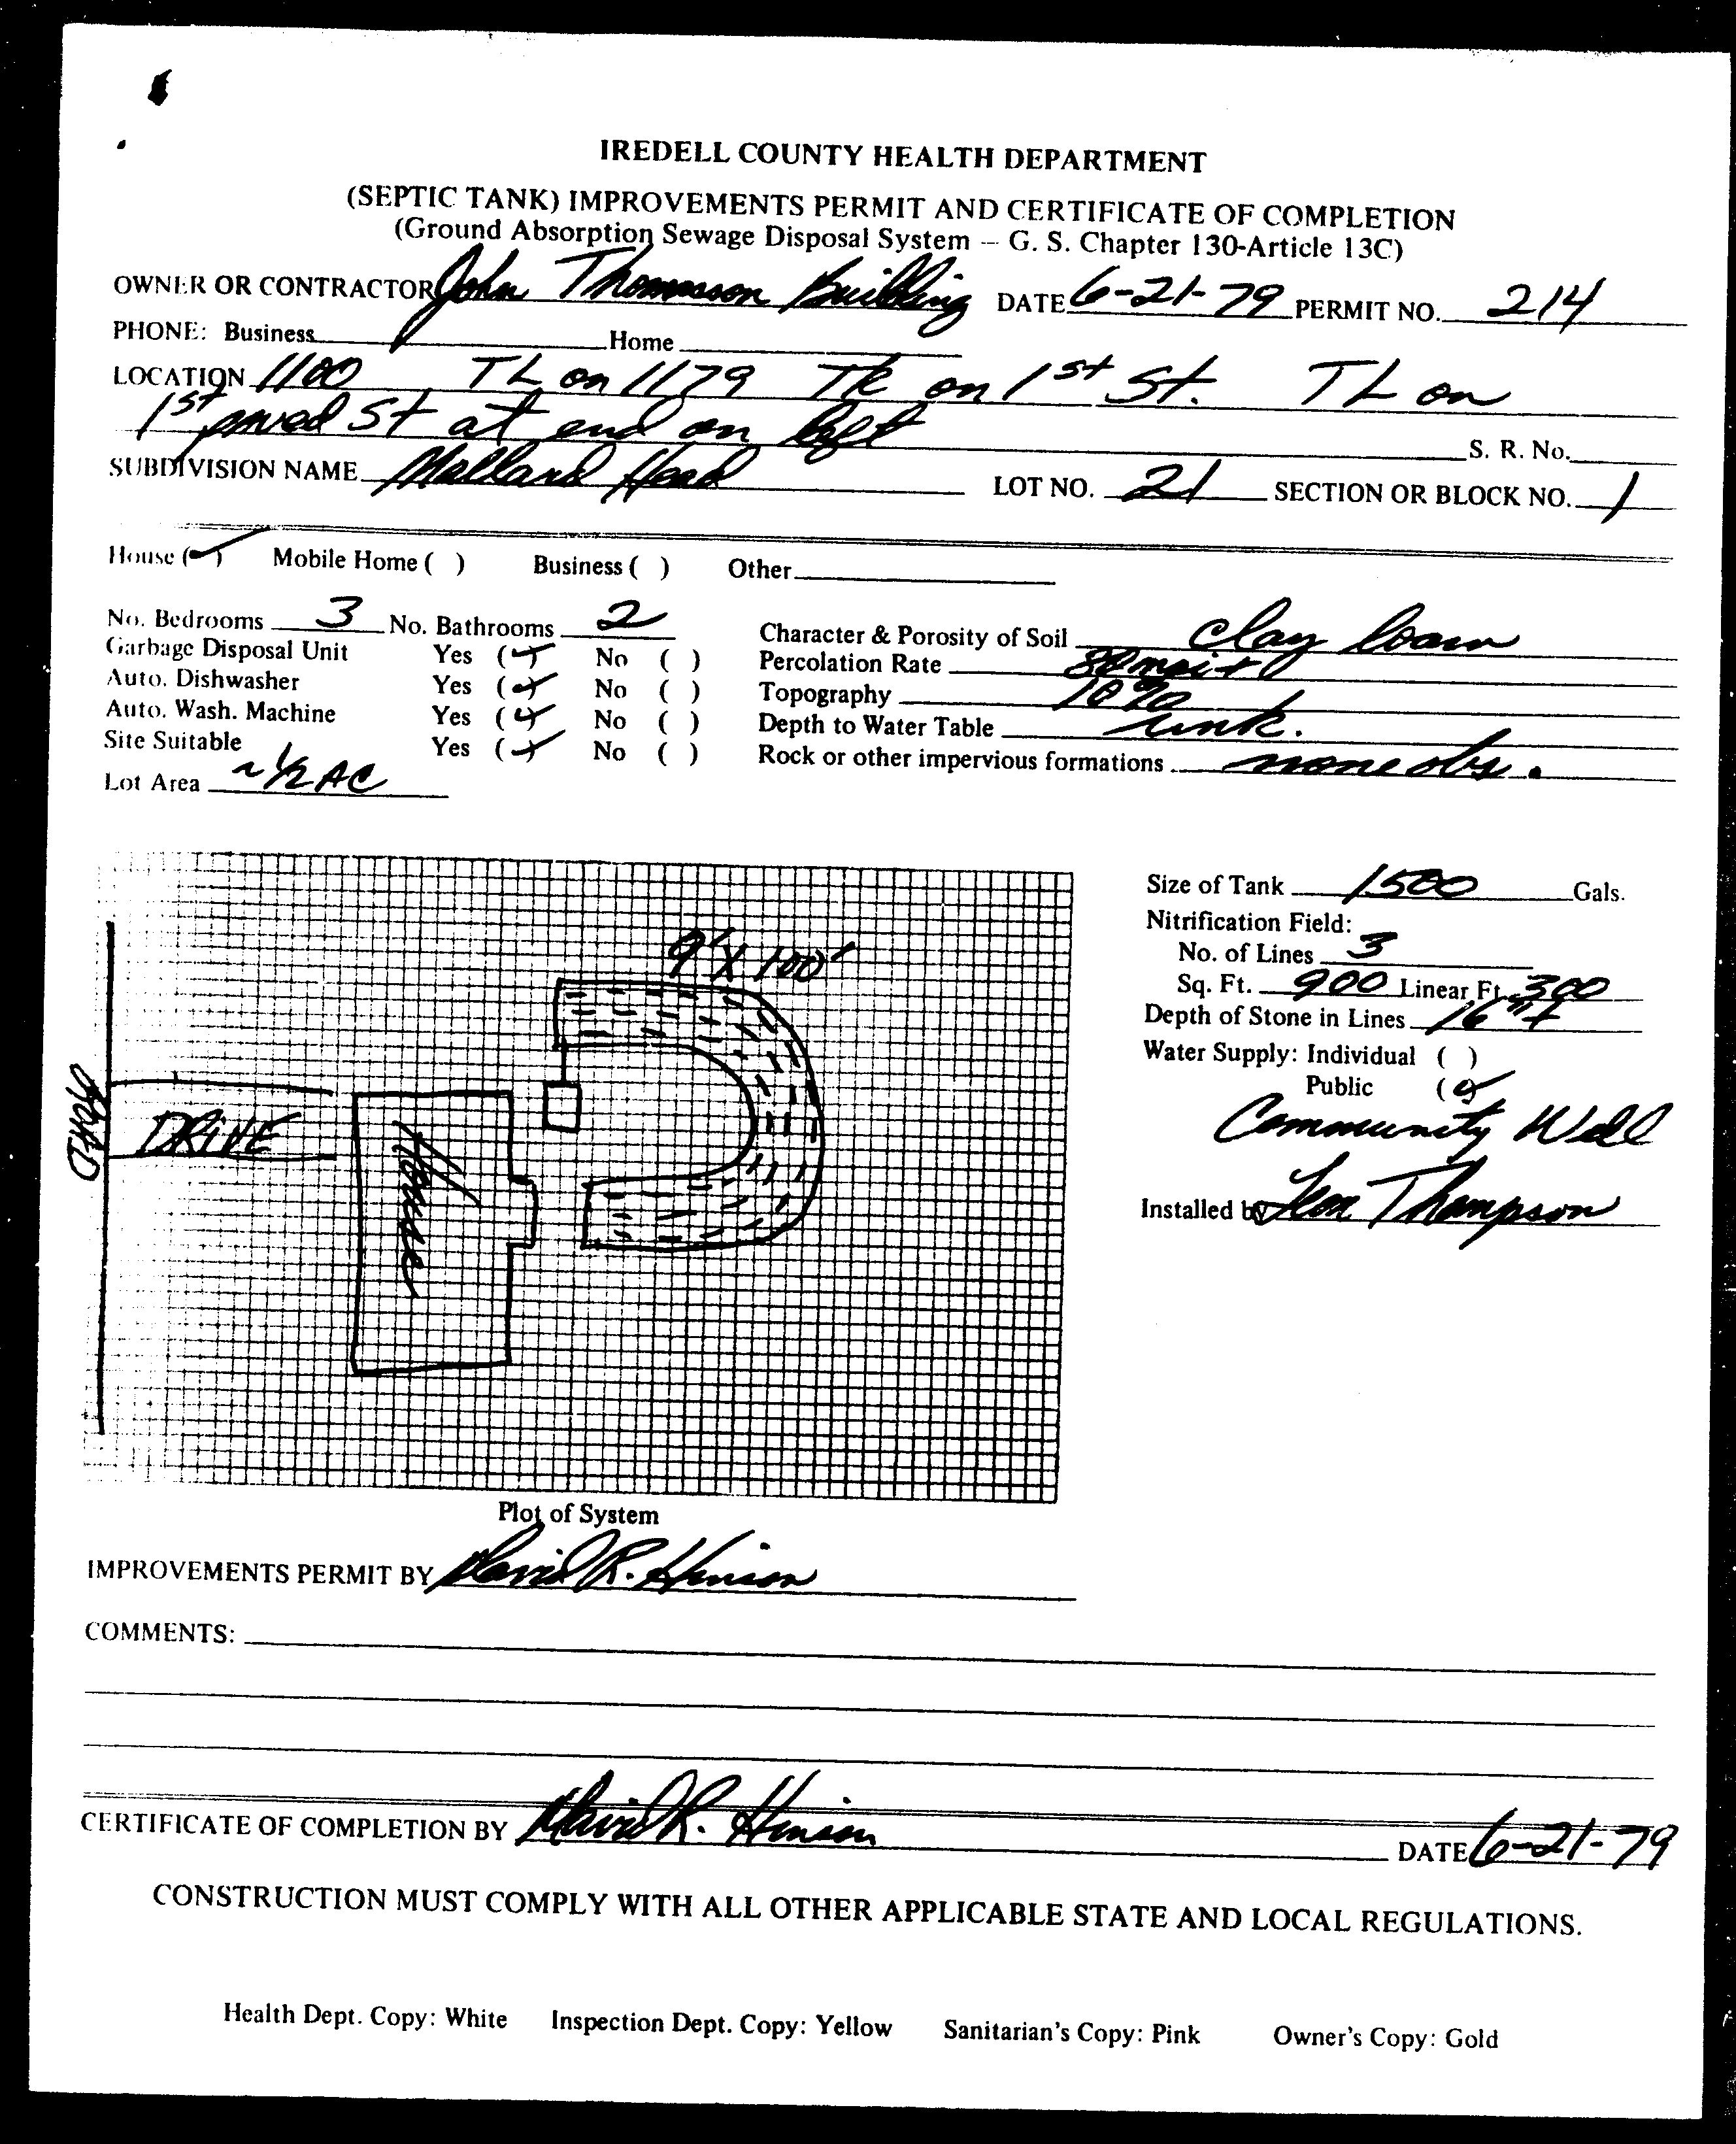 IREDELL COUNTY HEALTH DEPARTMENT
(SEPTIC TANK) IMPROVEMENTS PERMIT AND CERTIFICATE OF COMPLETION
(Ground Absorption Sewage Disposal System — G. S. Chapter 130-Article 13C)
OWNER OR CONTRACTOR John Thomasson Building DATE 6-21-79 PERMIT NO. 214
PHONE: Business Home
LOCATION 1100 TL on 1179 TR on 1st St. TL on
1st paved St at end on left S. R. No.
SUBDIVISION NAME Mallard Head LOT NO. 21 SECTION OR BLOCK NO. 1
House (✓) Mobile Home ( ) Business ( ) Other
No. Bedrooms 3 No. Bathrooms 2
Garbage Disposal Unit Yes (✓) No ( )
Auto. Dishwasher Yes (✓) No ( )
Auto. Wash. Machine Yes (✓) No ( )
Site Suitable Yes (✓) No ( )
Lot Area ~1/2 AC
Character & Porosity of Soil clay loam
Percolation Rate
Topography 10%
Depth to Water Table unk.
Rock or other impervious formations none obs.
9' X 100'
ROAD
DRIVE
House
Plot of System
Size of Tank 1500 Gals.
Nitrification Field:
No. of Lines 3
Sq. Ft. 900 Linear Ft. 300
Depth of Stone in Lines 16"
Water Supply: Individual ( )
Public (✓)
Community Well
Installed by Thompson
IMPROVEMENTS PERMIT BY David R. Hinson
COMMENTS:
CERTIFICATE OF COMPLETION BY David R. Hinson DATE 6-21-79
CONSTRUCTION MUST COMPLY WITH ALL OTHER APPLICABLE STATE AND LOCAL REGULATIONS.
Health Dept. Copy: White Inspection Dept. Copy: Yellow Sanitarian's Copy: Pink Owner's Copy: Gold